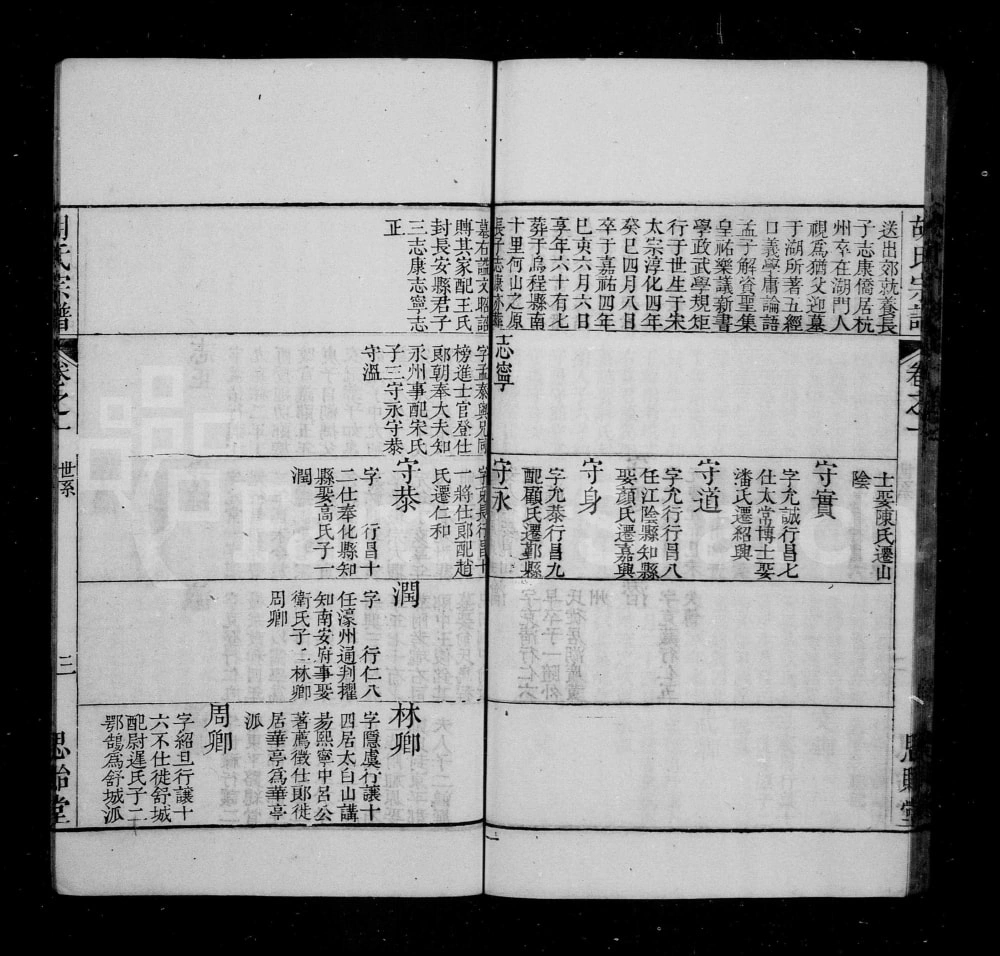 胡氏宗譜
卷之一
送出郊就養長
子志康僑居杭
州卒在湖門人
視爲猶父迎墓
于湖所著五經
口義學庸論語
孟子解資聖集
皇祐樂議新書
學政武學規矩
行于世生于宋
太宗淳化四年
癸巳四月八日
卒于嘉祐四年
己亥六月六日
享年六十有七
葬于烏程縣南
十里何山之原
長子志康亦
墓右諡文昭詔
賻其家配王氏
封長安縣君子
三志康志寧志
正
志寧
字孟泰與兄同
榜進士官登仕
郎朝奉大夫知
永州事配宋氏
子三守永守恭
守溫
士娶陳氏遷山
陰
守實
字允誠行昌七
仕太常博士娶
潘氏遷紹興
守道
字允行行昌八
任江陰縣知縣
娶顏氏遷嘉興
守身
字允恭行昌九
配顧氏遷鄞縣
守永
字克長行昌十
一將仕郎配趙
氏遷仁和
守恭
字 行昌十
二仕奉化縣知
縣娶高氏子一
潤
潤
字 行仁八
任濠州通判擢
知南安府事娶
衛氏子二林卿
周卿
林卿
字隱虞行讓十
四居太白山講
易熙寧中呂公
著薦徵仕郎徙
居華亭爲華亭
派
周卿
字紹旦行讓十
六不仕徙舒城
配尉遲氏子二
鄂鵠爲舒城派
胡氏宗譜
卷之一
世系
三
思貽堂